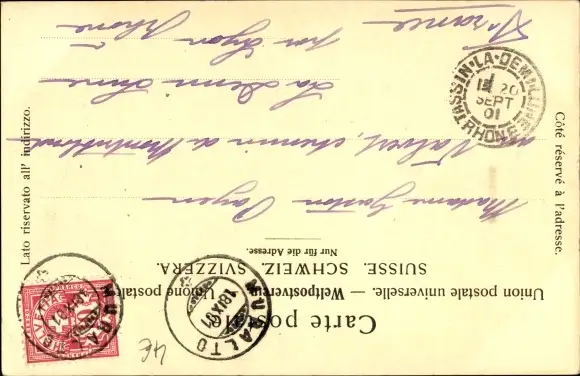 Carte postale.
Union postale universelle. — Weltpostverein. — Unione postale
SUISSE. SCHWEIZ. SVIZZERA.
Nur für die Adresse.
Côté réservé à l'adresse.
Lato riservato all' indirizzo.
Madame Gaston Payen
Valvert, chemin de
La Demi Lune
par Lyon
Rhône
France
TASSIN-LA-DEMI-LUNE
20
SEPT
01
RHONE
MURALTO
18.IX.01
MURA
10
4€